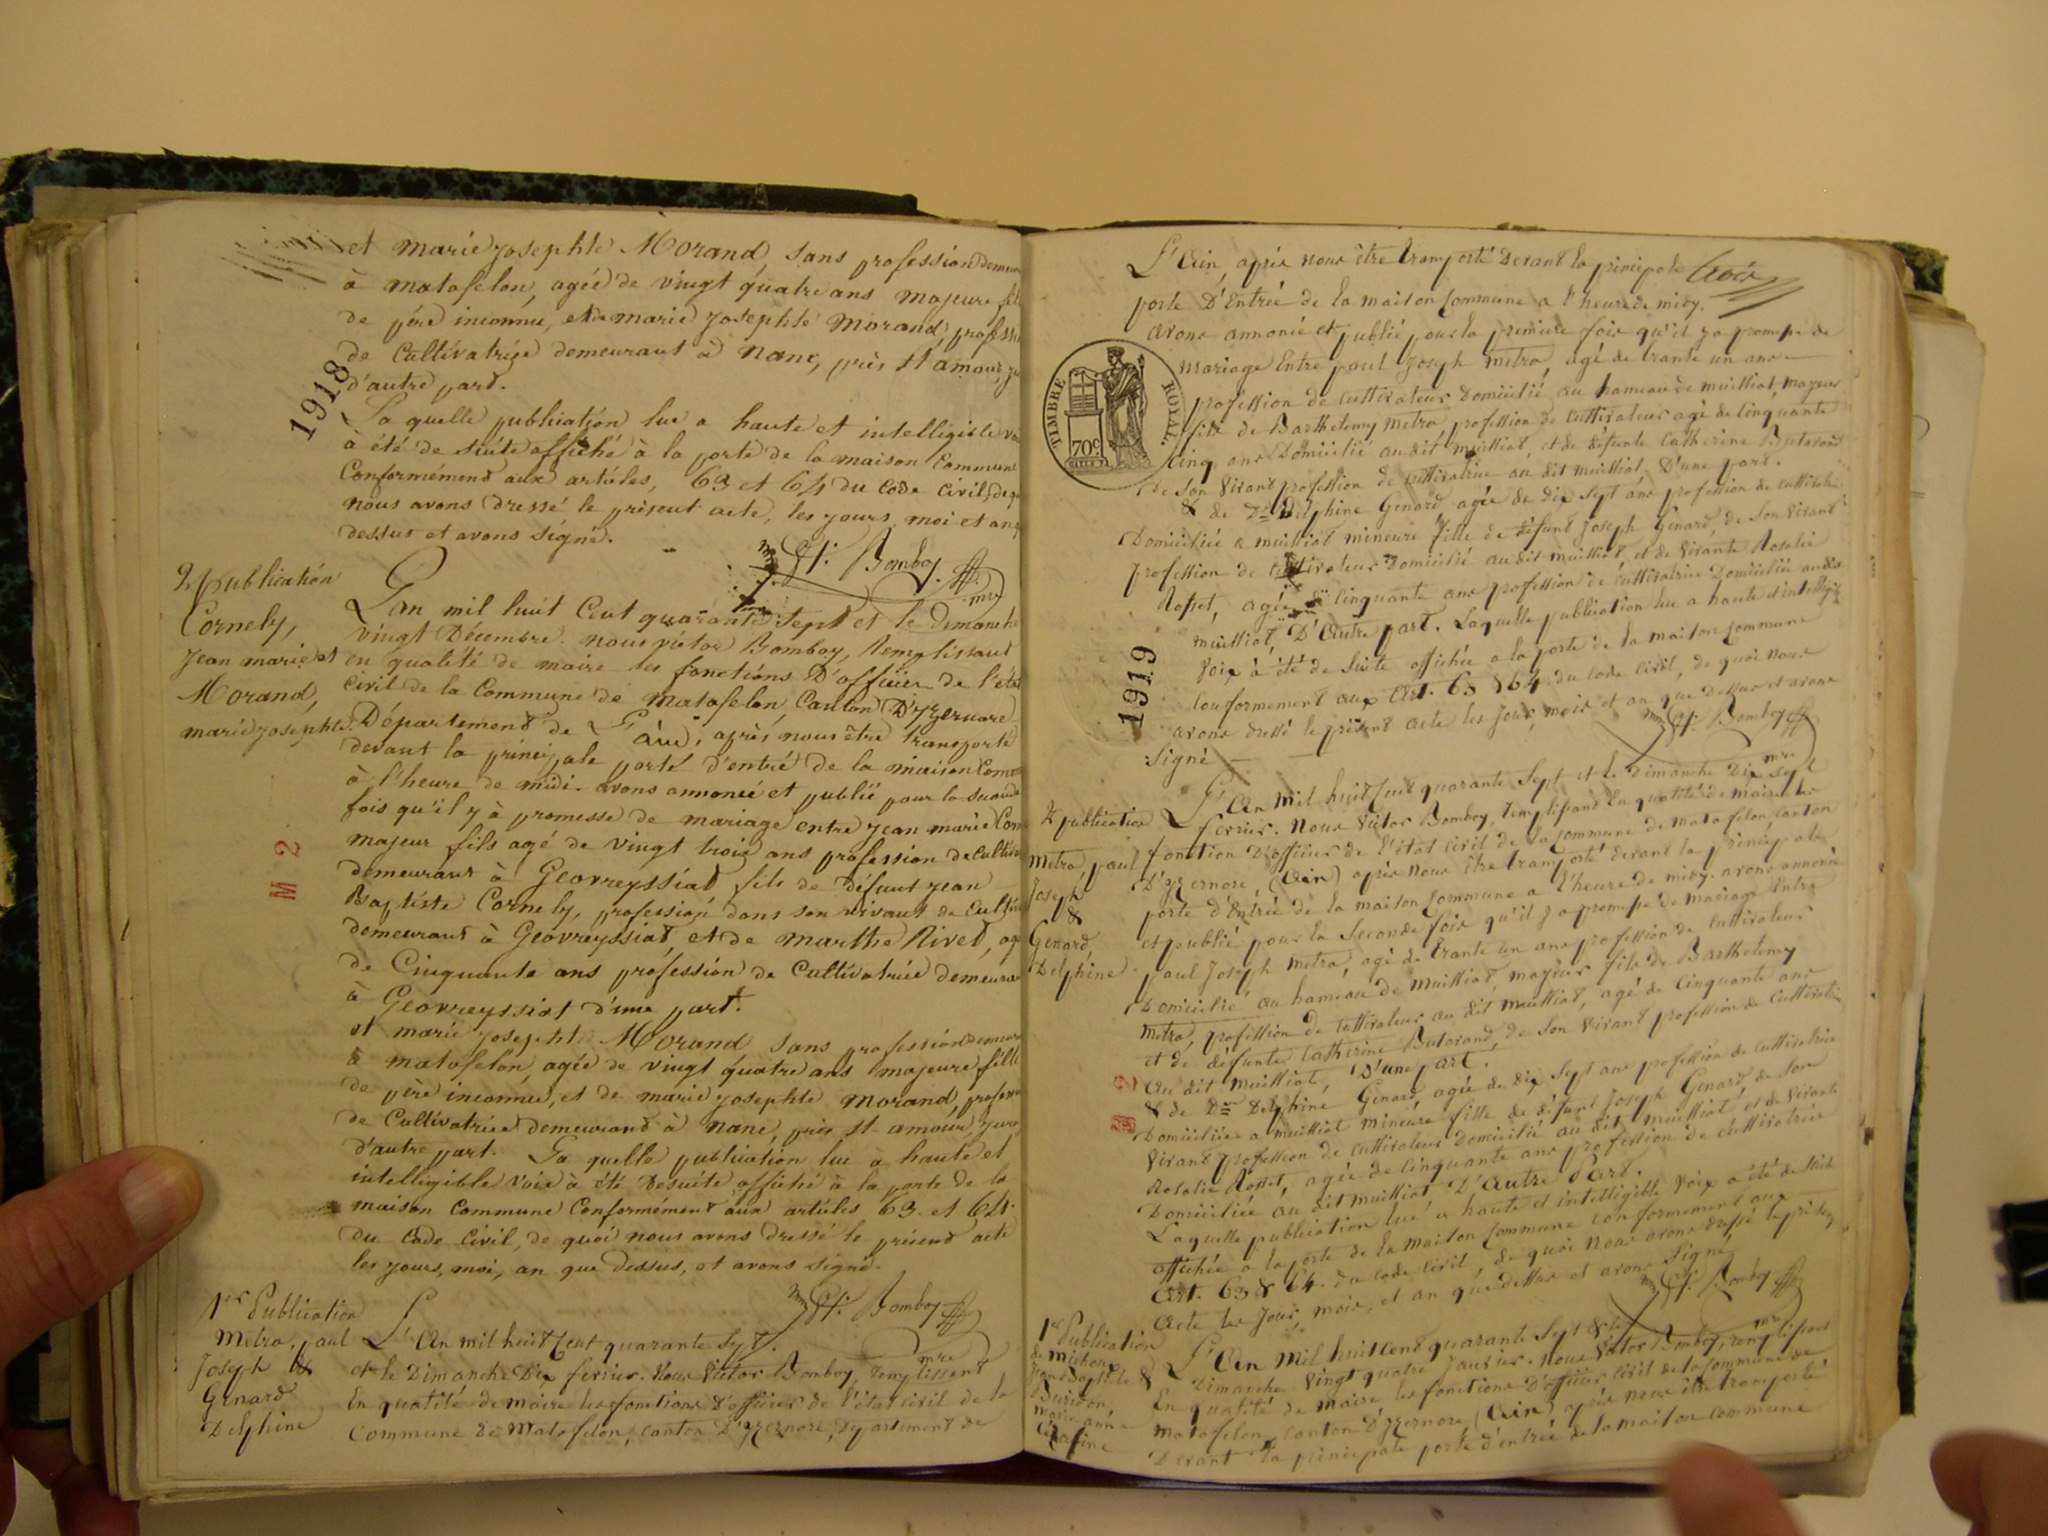 et marie josephte Morand, sans profession
à matafelon, agée de vingt quatre ans majeure
de père inconnu, et de marie josephte Morand
de Cultivatrice demeurant à nanc, près st amour,
d'autre part.
1918
La quelle publication lue a haute et intelligible
à été de suite affiché à la porte de la maison Commune
Conformément aux articles, 63 et 64 du Code civil,
nous avons dressé le présent acte, les jours, moi et an
dessus et avons signé.
Bomboy
mre
2 publication
Cornely,
Jean marie et
Morand,
marie josephte
Lan mil huit Cent quarante sept et le dimanche
vingt Décembre. nous victor Bomboy, Remplissant
en qualité de maire les fonctions D'officier de l'état
civil de la Commune de Matafelon Canton D'Yzernore
Département de L'ain, après nous être transporté
devant la principale porte d'entré de la maison
à l'heure de midi. avons annoncé et publié pour la seconde
fois qu'il y à promesse de mariage entre jean marie
majeur fils agé de vingt trois ans profession de
demeurant à Geovreyssiat fils de défunt jean
Baptiste Cornely, profession dans son vivant de
demeurant à Geovreyssiat, et de marthe Nivet,
de Cinquante ans profession de Cultivatrice
à Geovreyssiat d'une part.
et marie josephte Morand sans profession
à matafelon, agée de vingt quatre ans majeure fille
de père inconnu, et de marie josephte morand,
de Cultivatrice demeurand à nanc, près st-amour,
d'autre part. La quelle publication lue à haute et
intelligible voix à été Desuite affiché à la porte de la
maison Commune Conformément aux articles 63. et 64.
du Code Civil, de quoi nous avons dressé le présend acte
les jours, moi, an que dessus, et avons signé.
M 2
Bomboy
mre
1re Publication
Metra, paul
Joseph &
Genard
Delphine
L'An mil huit Cent quarante Sept.
et le Dimanche Dix fevrier. Nous Victor Bomboy, remplissant
En qualité de maire les fonctions D'officier de l'état civil de la
Commune de Matafelon, canton D'Yzernore, Département de
L'Ain, après nous être tranporté Devant la principale
trois
porte D'Entrée de la maison Commune a l'heure de midy.
avons annoncé et publié pour la premiere fois qu'il y a promesse de
TIMBRE ROYAL.
70c.
mariage Entre paul Joseph metra, agé de trante un ans
profession de cultivateur Domicilié au hameau de muissiat, majeur
fils de Barthelemy Metra, profession de cultivateur agé de cinquante
Cinq ans Domicilié audit muissiat, et de défunte Catherine Butavand
de son Vivant profession de cultivatrice au dit muissiat, D'une part.
& de Dlle Delphine Genard, agée de dix sept ans profession de
Domiciliée a muissiat mineure fille de défunt Joseph Genard, de son Vivant
profession de cultivateur Domicilié audit muissiat et de Vivante Rosalie
Rosset, agée de cinquante ans profession de cultivatrice Domiciliée
muissiat, D'Autre part. Laquelle publication lue a haute et
Voix à été de Suite affichée a la porte de la maison Commune
Conformement aux Art. 63 & 64. du code Civil, de quoi nous
avons dressé le présent acte les Jour, mois et an que Dessus et avons
signé
1919
Bomboy
mre
2e publication
Metra, paul
Joseph
&
Genard,
Delphine
L'An mil huit Cent quarante Sept et le Dimanche Dix sept
fevrier. Nous Victor Bomboy, remplissant En qualité de maire les
fonction D'officier de l'état civil de la commune de matafelon canton
D'yzernore, (Ain) après nous être tranporté devant la principale
porte d'Entrée de la maison Commune a l'heure de midy. avons annoncé
et publié pour la Seconde fois qu'il y a promesse de Mariage Entre
paul Joseph metra, agé de trante un ans profession de cultivateur
Domicilié au hameau de muissiat, majeur fils de Barthelemy
Metra, profession de cultivateur au dit muissiat, agé de cinquante ans
et de défunte Catherine Butavand, de son Vivant profession de
Au dit muissiat, D'une part.
& de Dlle Delphine Genard agée de dix Sept ans profession de cultivatrice
Domiciliée a muissiat mineure fille de défunt Joseph Genard, de son
Vivant profession de cultivateur Domicilié au dit muissiat et de Vivante
Rosalie Rosset, agée de cinquante ans profession de cultivatrice
Domiciliée au dit muissiat, D'Autre Part.
Laquelle publication lue a haute et intelligible voix a été de Suite
affichée a la porte de la maison Commune Conformement aux
Art. 63 & 64. du code Civil, de quoi Nous avons dressé le présent
Acte les Jour, mois, et an que dessus et avons Signé,
Bomboy
mre
1re Publication
de michoux
Jean Baptiste &
Buridon,
marie anne
L'An mil huit cent quarante Sept & le
Dimanche Vingt quatre Janvier. Nous Victor Bomboy, remplissant
En qualité de maire, les fonctions D'officier civil de la commune de
matafelon, canton D'yzernore (Ain) après nous être tranporté
Devant la principale porte d'entrée de la maison commune